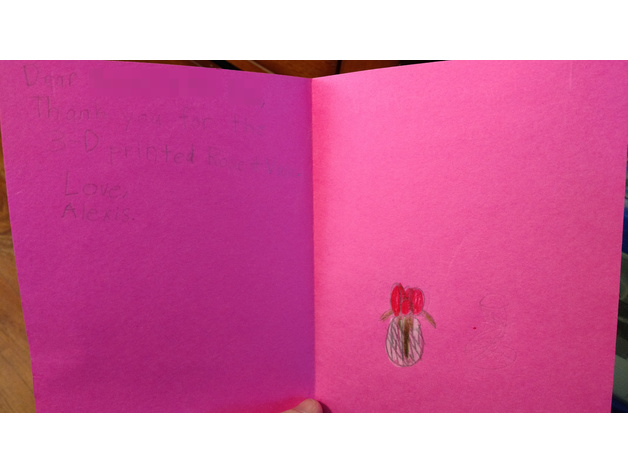 Dear
Thank you for the
3-D printed
Love,
Alexis.